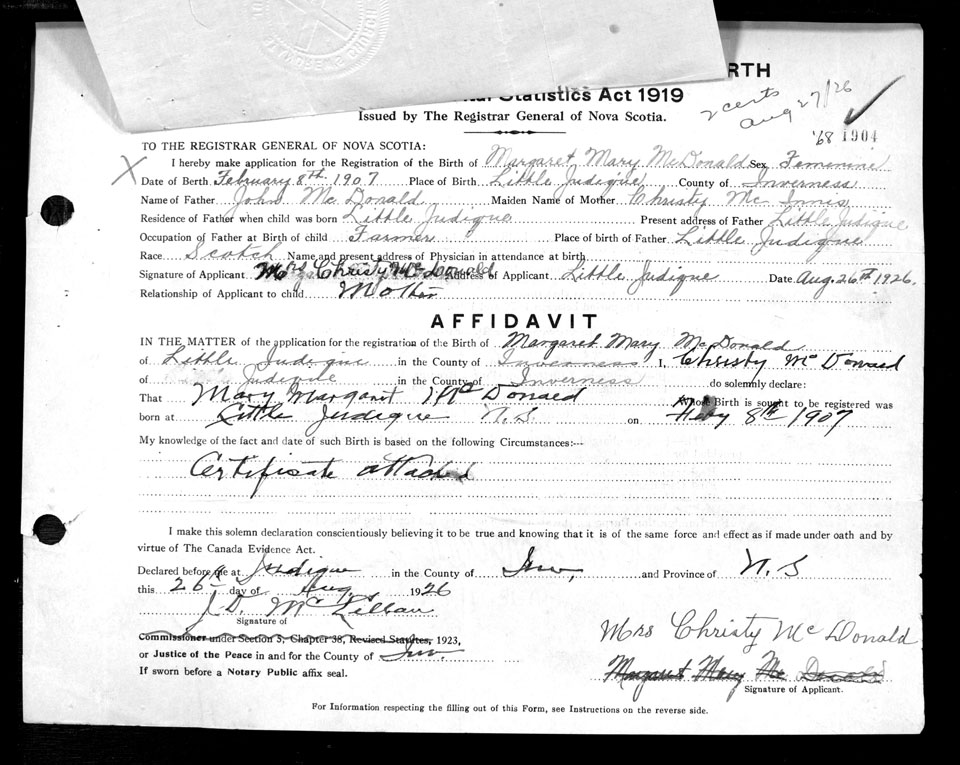 RTH
Statistics Act 1919
Issued by The Registrar General of Nova Scotia.
2 certs
Aug 27/26
'68 1904
TO THE REGISTRAR GENERAL OF NOVA SCOTIA:
I hereby make application for the Registration of the Birth of Margaret Mary McDonald Sex Femenine
Date of Berth February 8th 1907 Place of Birth Little Judique County of Inverness
Name of Father John McDonald Maiden Name of Mother Christy McInnis
Residence of Father when child was born Little Judique Present address of Father Little Judique
Occupation of Father at Birth of child Farmer Place of birth of Father Little Judique
Race Scotch Name and present address of Physician in attendance at birth
Signature of Applicant Mrs Christy McDonald Address of Applicant Little Judique Date Aug. 26th 1926.
Relationship of Applicant to child Mother
AFFIDAVIT
IN THE MATTER of the application for the registration of the Birth of Margaret Mary McDonald
of Little Judique in the County of Inverness I, Christy McDonald
of Judique in the County of Inverness do solemnly declare:
That Mary Margaret McDonald Whose Birth is sought to be registered was
born at Little Judique N.S. on Feby 8th 1907
My knowledge of the fact and date of such Birth is based on the following Circumstances:--
Certificate attached
I make this solemn declaration conscientiously believing it to be true and knowing that it is of the same force and effect as if made under oath and by
virtue of The Canada Evidence Act.
Declared before me at Judique in the County of Inv, and Province of N.S
this 26th day of Aug. 1926
J.D. McLellan
Signature of
Commissioner under Section 5, Chapter 38, Revised Statutes, 1923,
or Justice of the Peace in and for the County of Inv.
If sworn before a Notary Public affix seal.
Mrs Christy McDonald
Margaret Mary McDonald
Signature of Applicant.
For Information respecting the filling out of this Form, see Instructions on the reverse side.